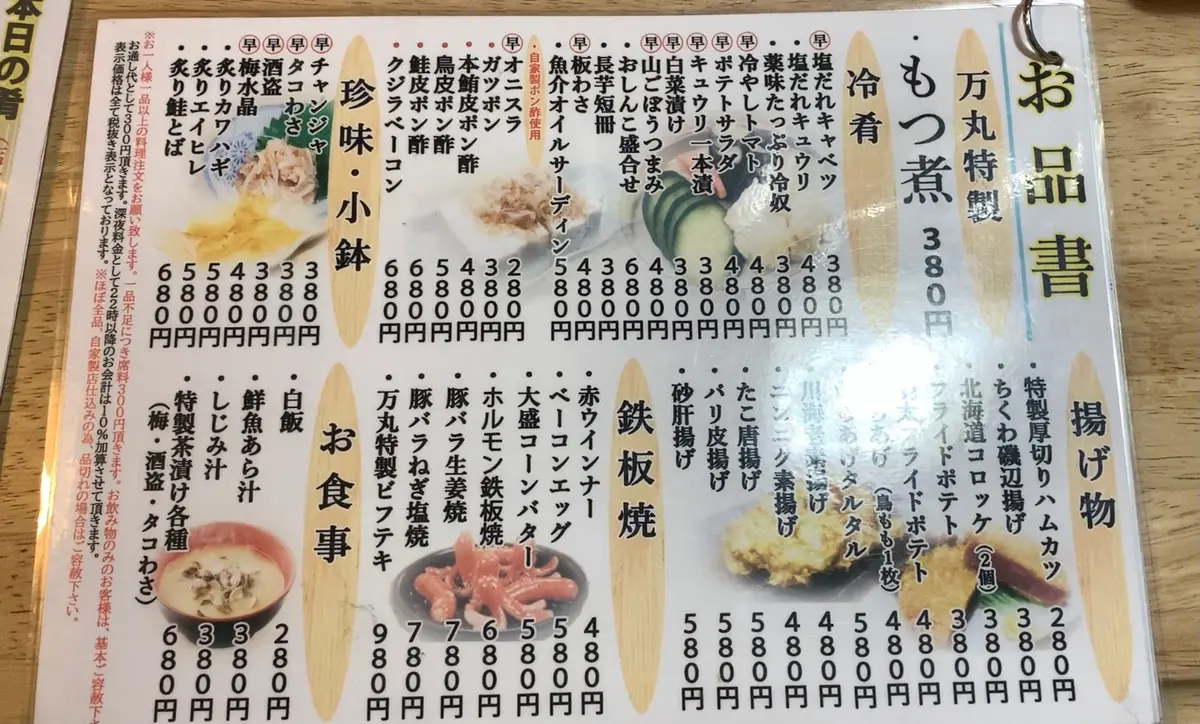 お品書
万丸特製
・もつ煮 380円
冷肴
早・塩だれキャベツ 380円
・塩だれキュウリ 480円
・薬味たっぷり冷奴 480円
早・冷やしトマト 480円
早・ポテトサラダ 480円
早・キュウリ一本漬 380円
早・白菜漬け 380円
早・山ごぼうつまみ 480円
・おしんこ盛合せ 680円
・長芋短冊 380円
早・板わさ 480円
・魚介オイルサーディン 580円
・自家製ポン酢使用
早・オニスラ 280円
・ガツポン 380円
・本鮪皮ポン酢 480円
・鳥皮ポン酢 580円
・鮭皮ポン酢 680円
・クジラベーコン 680円
珍味・小鉢
早・チャンジャ 380円
早・タコわさ 380円
早・酒盗 380円
早・梅水晶 480円
・炙りカワハギ 580円
・炙りエイヒレ 580円
・炙り鮭とば 680円
揚げ物
・特製厚切りハムカツ 280円
・ちくわ磯辺揚げ 380円
・北海道コロッケ(2個) 380円
フライドポテト 380円
ライドポテト 480円
あげ(鳥もも1枚) 480円
あげタルタル 580円
揚げ 480円
・ニンニク素揚げ 480円
・たこ唐揚げ 580円
・バリ皮揚げ 580円
・砂肝揚げ 580円
鉄板焼
・赤ウインナー 480円
・ベーコンエッグ 580円
・大盛コーンバター 580円
・ホルモン鉄板焼 680円
・豚バラ生姜焼 780円
・豚バラねぎ塩焼 780円
・万丸特製ビフテキ 980円
お食事
・白飯 280円
・鮮魚あら汁 380円
・しじみ汁 380円
・特製茶漬け各種 680円
(梅・酒盗・タコわさ)
※お一人様一品以上の料理注文をお願い致します。一品不足につき席料300円頂きます。お飲み物のみのお客様は、基本ご容赦下さい。
お通し代として300円頂きます。深夜料金として22時以降のお会計は10%加算させて頂きます。
表示価格は全て税抜き表示となっております。※ほぼ全品、自家製店仕込みの為、品切れの場合はご容赦下さい。
本日の肴